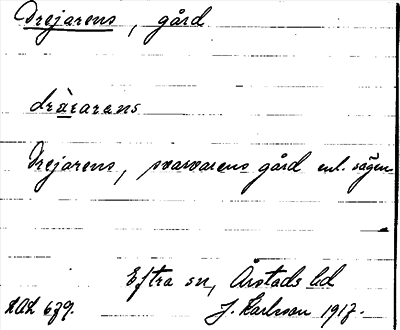 Drejarens, gård
dräiarans
Drejarens, svarvarens gård enl. sägen.
Eftra sn, Årstads hd
J. Karlsson 1917.